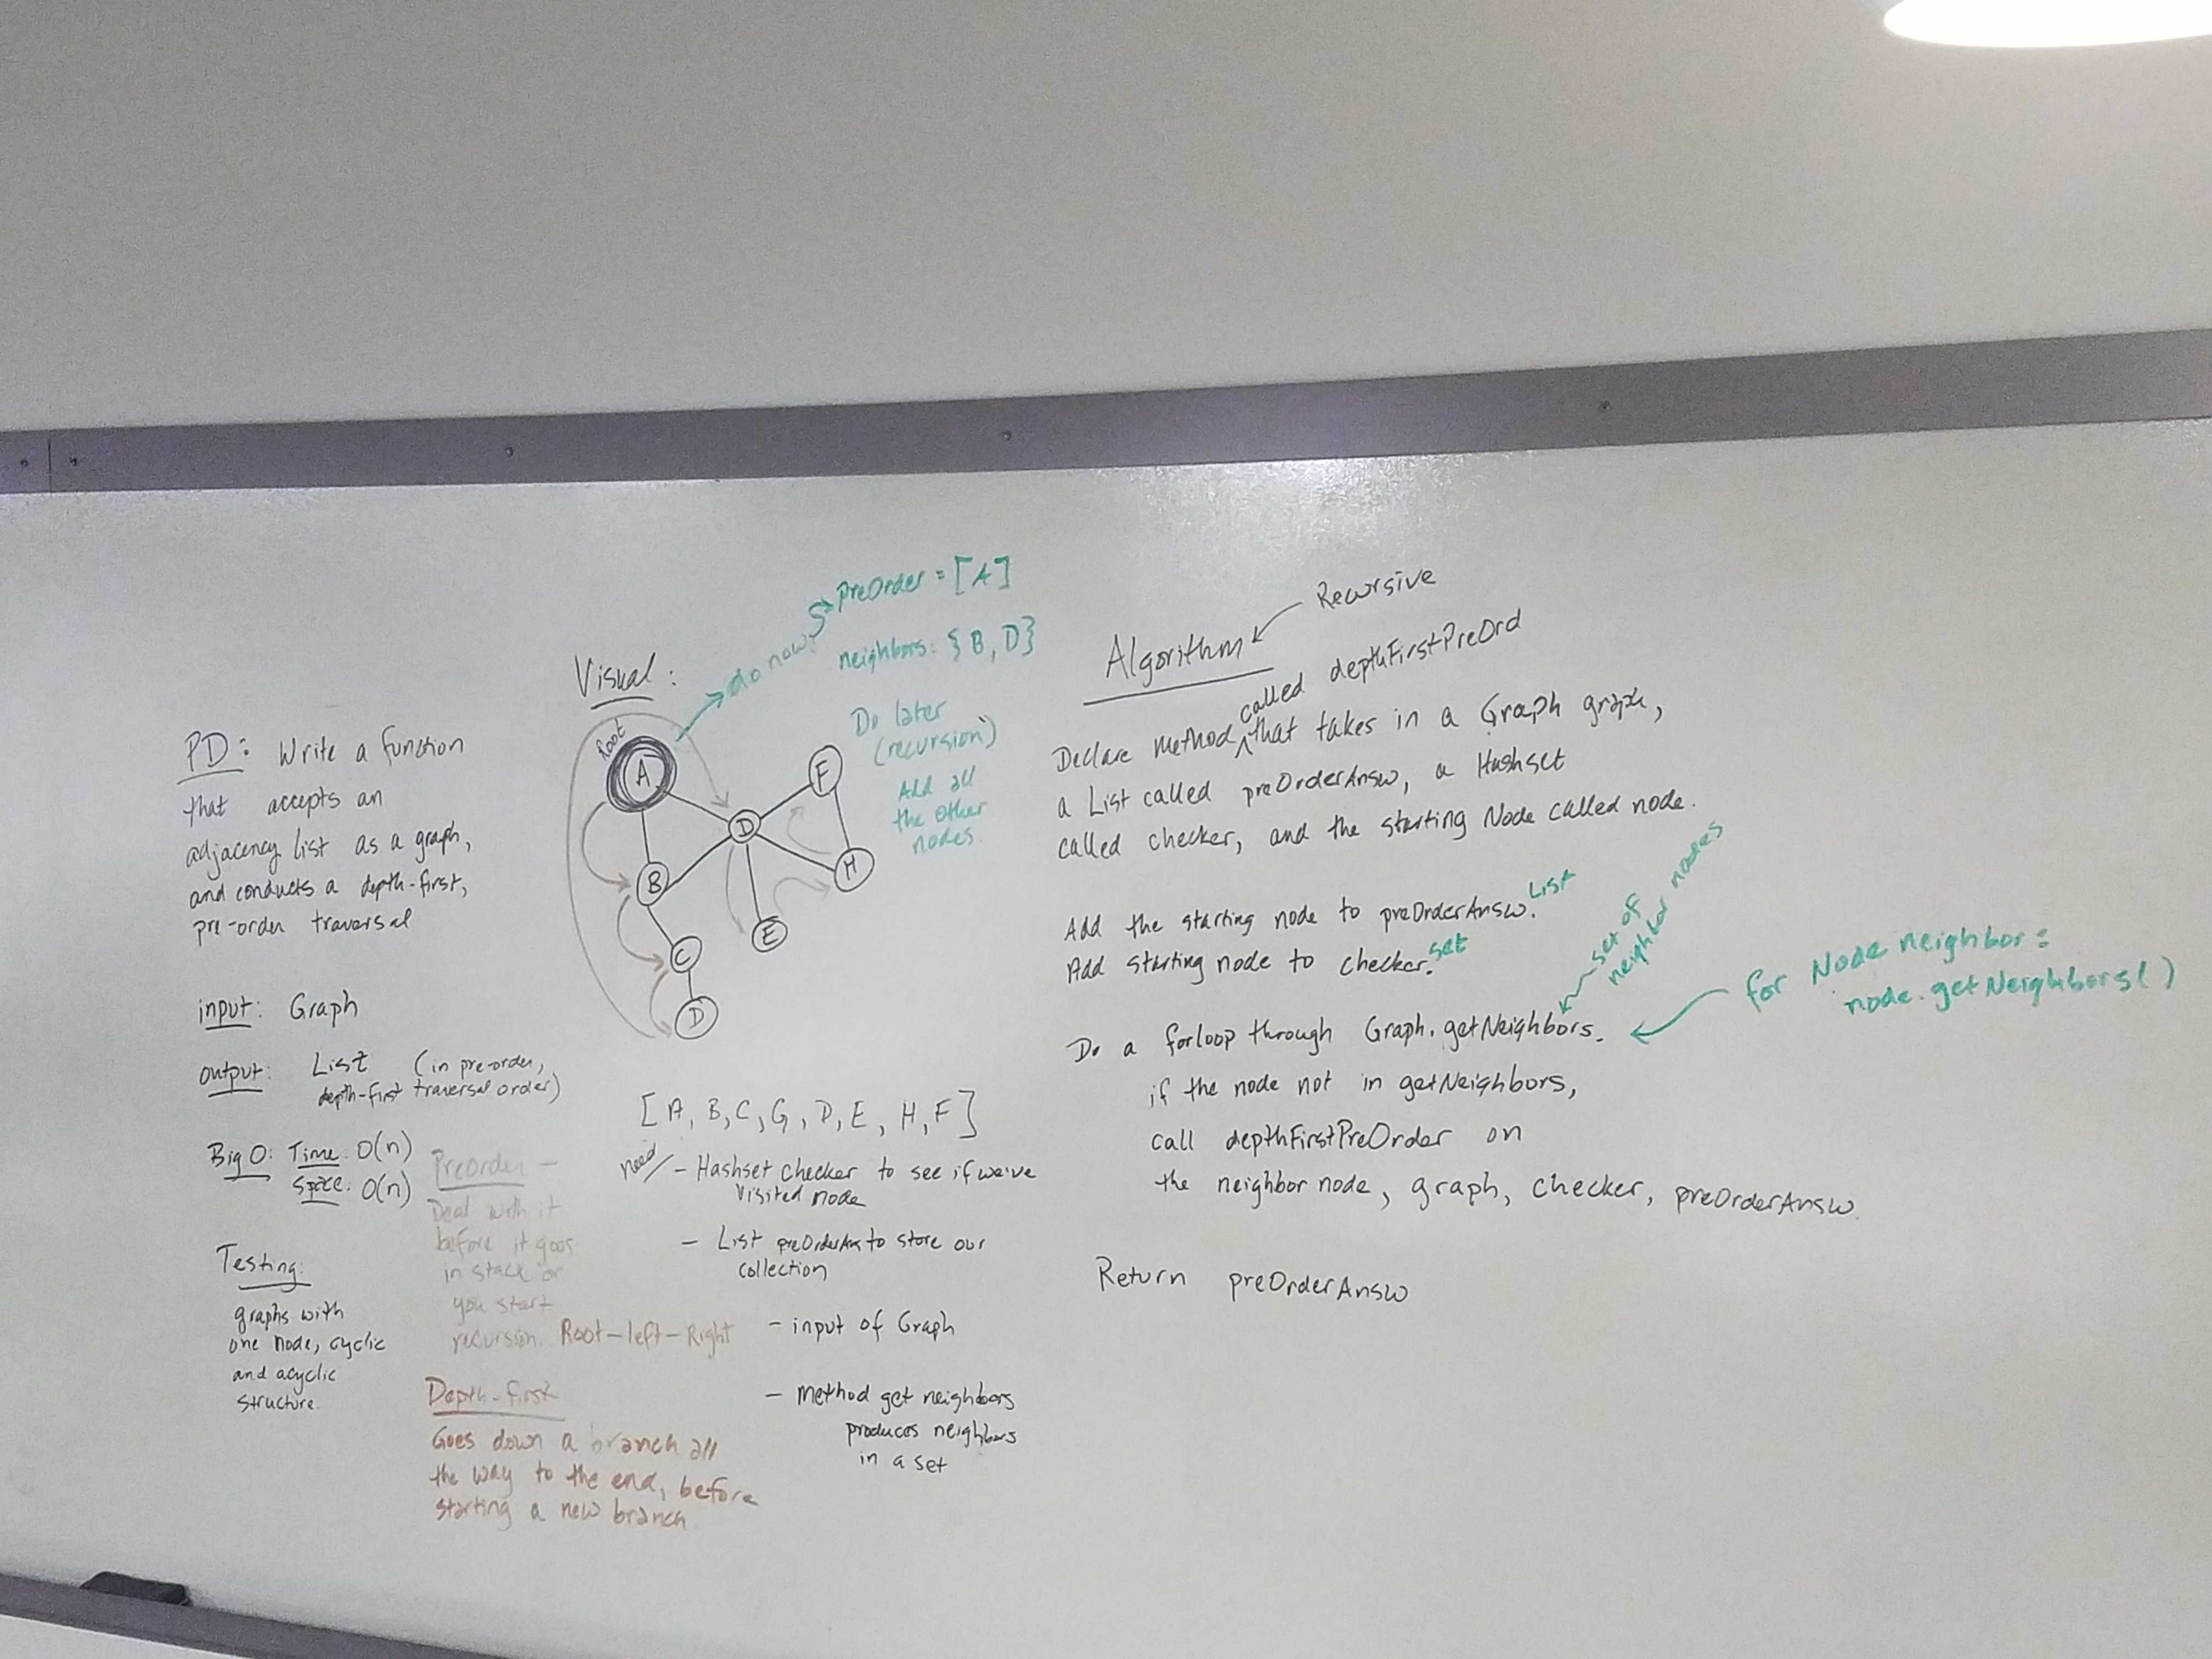 PD: Write a function
that accepts an
adjacency list as a graph,
and conducts a depth-first,
pre-order traversal
input: Graph
output: List (in pre-order,
depth-first traversal order)
Big O: Time: O(n)
Space: O(n)
Testing:
graphs with
one node, cyclic
and acyclic
structure.
PreOrder —
Deal with it
before it goes
in stack or
you start
recursion. Root-left-Right
Depth-first
Goes down a branch all
the way to the end, before
starting a new branch.
Visual:
do now
preOrder = [A]
neighbors: {B, D}
Do later
(recursion)
Add all
the other
nodes.
Root
A
F
D
H
B
E
C
D
[A, B, C, G, D, E, H, F]
need/ - Hashset checker to see if we've
visited node
- List preOrderAns to store our
collection
- input of Graph
- Method get neighbors
produces neighbors
in a set
Algorithm
Recursive
called depthFirstPreOrd
Declare method ^ that takes in a Graph graph,
a List called preOrderAnsw, a Hashset
called checker, and the starting Node called node.
Add the starting node to preOrderAnsw. List
Add starting node to checker. set
set of
neighbor nodes
for Node neighbor :
node.getNeighbors()
Do a forloop through Graph.getNeighbors.
if the node not in getNeighbors,
call depthFirstPreOrder on
the neighbor node, graph, checker, preOrderAnsw.
Return preOrderAnsw